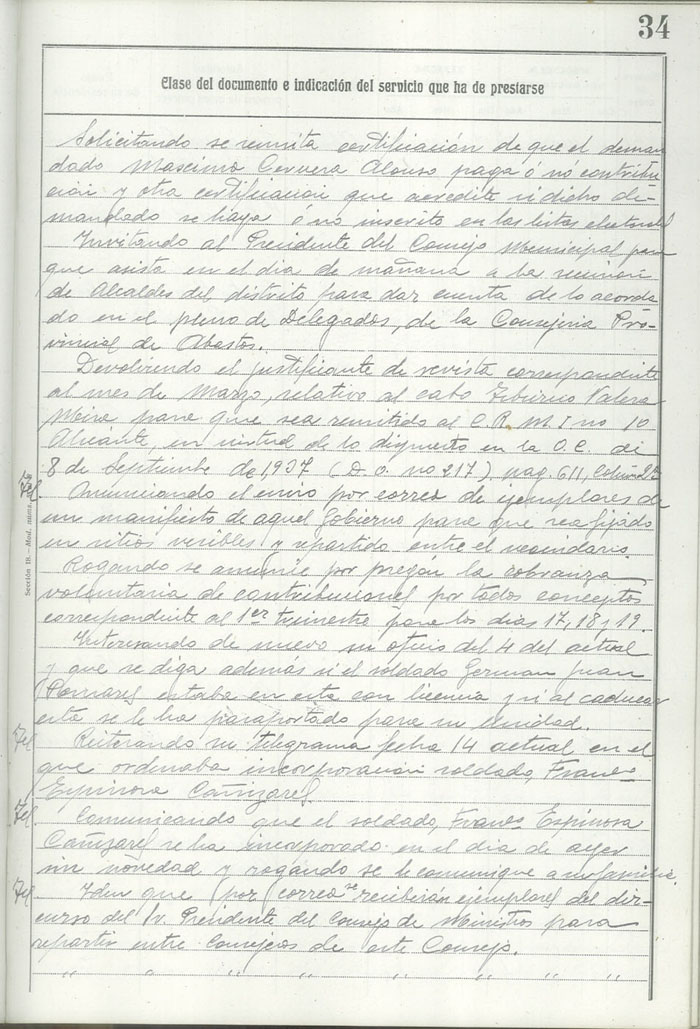 34
Clase del documento e indicación del servicio que ha de prestarse
Solicitando se remita certificación de que el deman
dado Mascimo Cervera Alonso paga ó nó contribu
ción y otra certificación que acredite si dicho de-
mandado se haya ó no inscrito en las listas electorales
Invitando al Presidente del Consejo Municipal para
que asista en el dia de mañana a la reunión
de Alcaldes del distrito para dar cuenta de lo acorda
do en el pleno de Delegados, de la Consejeria Pro-
vincial de Abastos.
Devolviendo el justificante de revista correspondiente
al mes de Marzo, relativo al cabo Tiburcio Valera
Mira para que sea remitido al C.R.M.I no 10
Alicante, en virtud de lo dispuesto en la O.C. de
8 de Septiembre de 1937 (D.O. no 217), pag. 611,
Tel. Anunciando el envio por correo de ejemplares de
un manifiesto de aquel Gobierno para que sea fijado
en sitios visibles y repartido entre el vecindario.
Rogando se anuncie por pregon la cobranza
voluntaria de contribuciones por todos conceptos
correspondiente al 1er trimestre para los dias 17, 18 y 19.
Interesando de nuevo su oficio del 4 del actual
y que se diga además si el soldado German Juan
Pomares estaba en esta con licencia y si al caducar
esta se le ha pasaportado para su Unidad.
Tel. Reiterando su telegrama fecha 14 actual en el
que ordenaba incorporación soldado, Franco
Espinosa Cañizares.
Tel. Comunicando que el soldado, Franco Espinosa
Cañizares se ha incorporado en el dia de ayer
sin novedad y rogando se le comunique a su familia.
Tel. Idem que por correo se recibirán ejemplares del dis-
curso del Sr. Presidente del Consejo de Ministros para
repartir entre Consejeros de este Consejo.
" " " " " " " "
Sección 1ª.- Mod. núm.